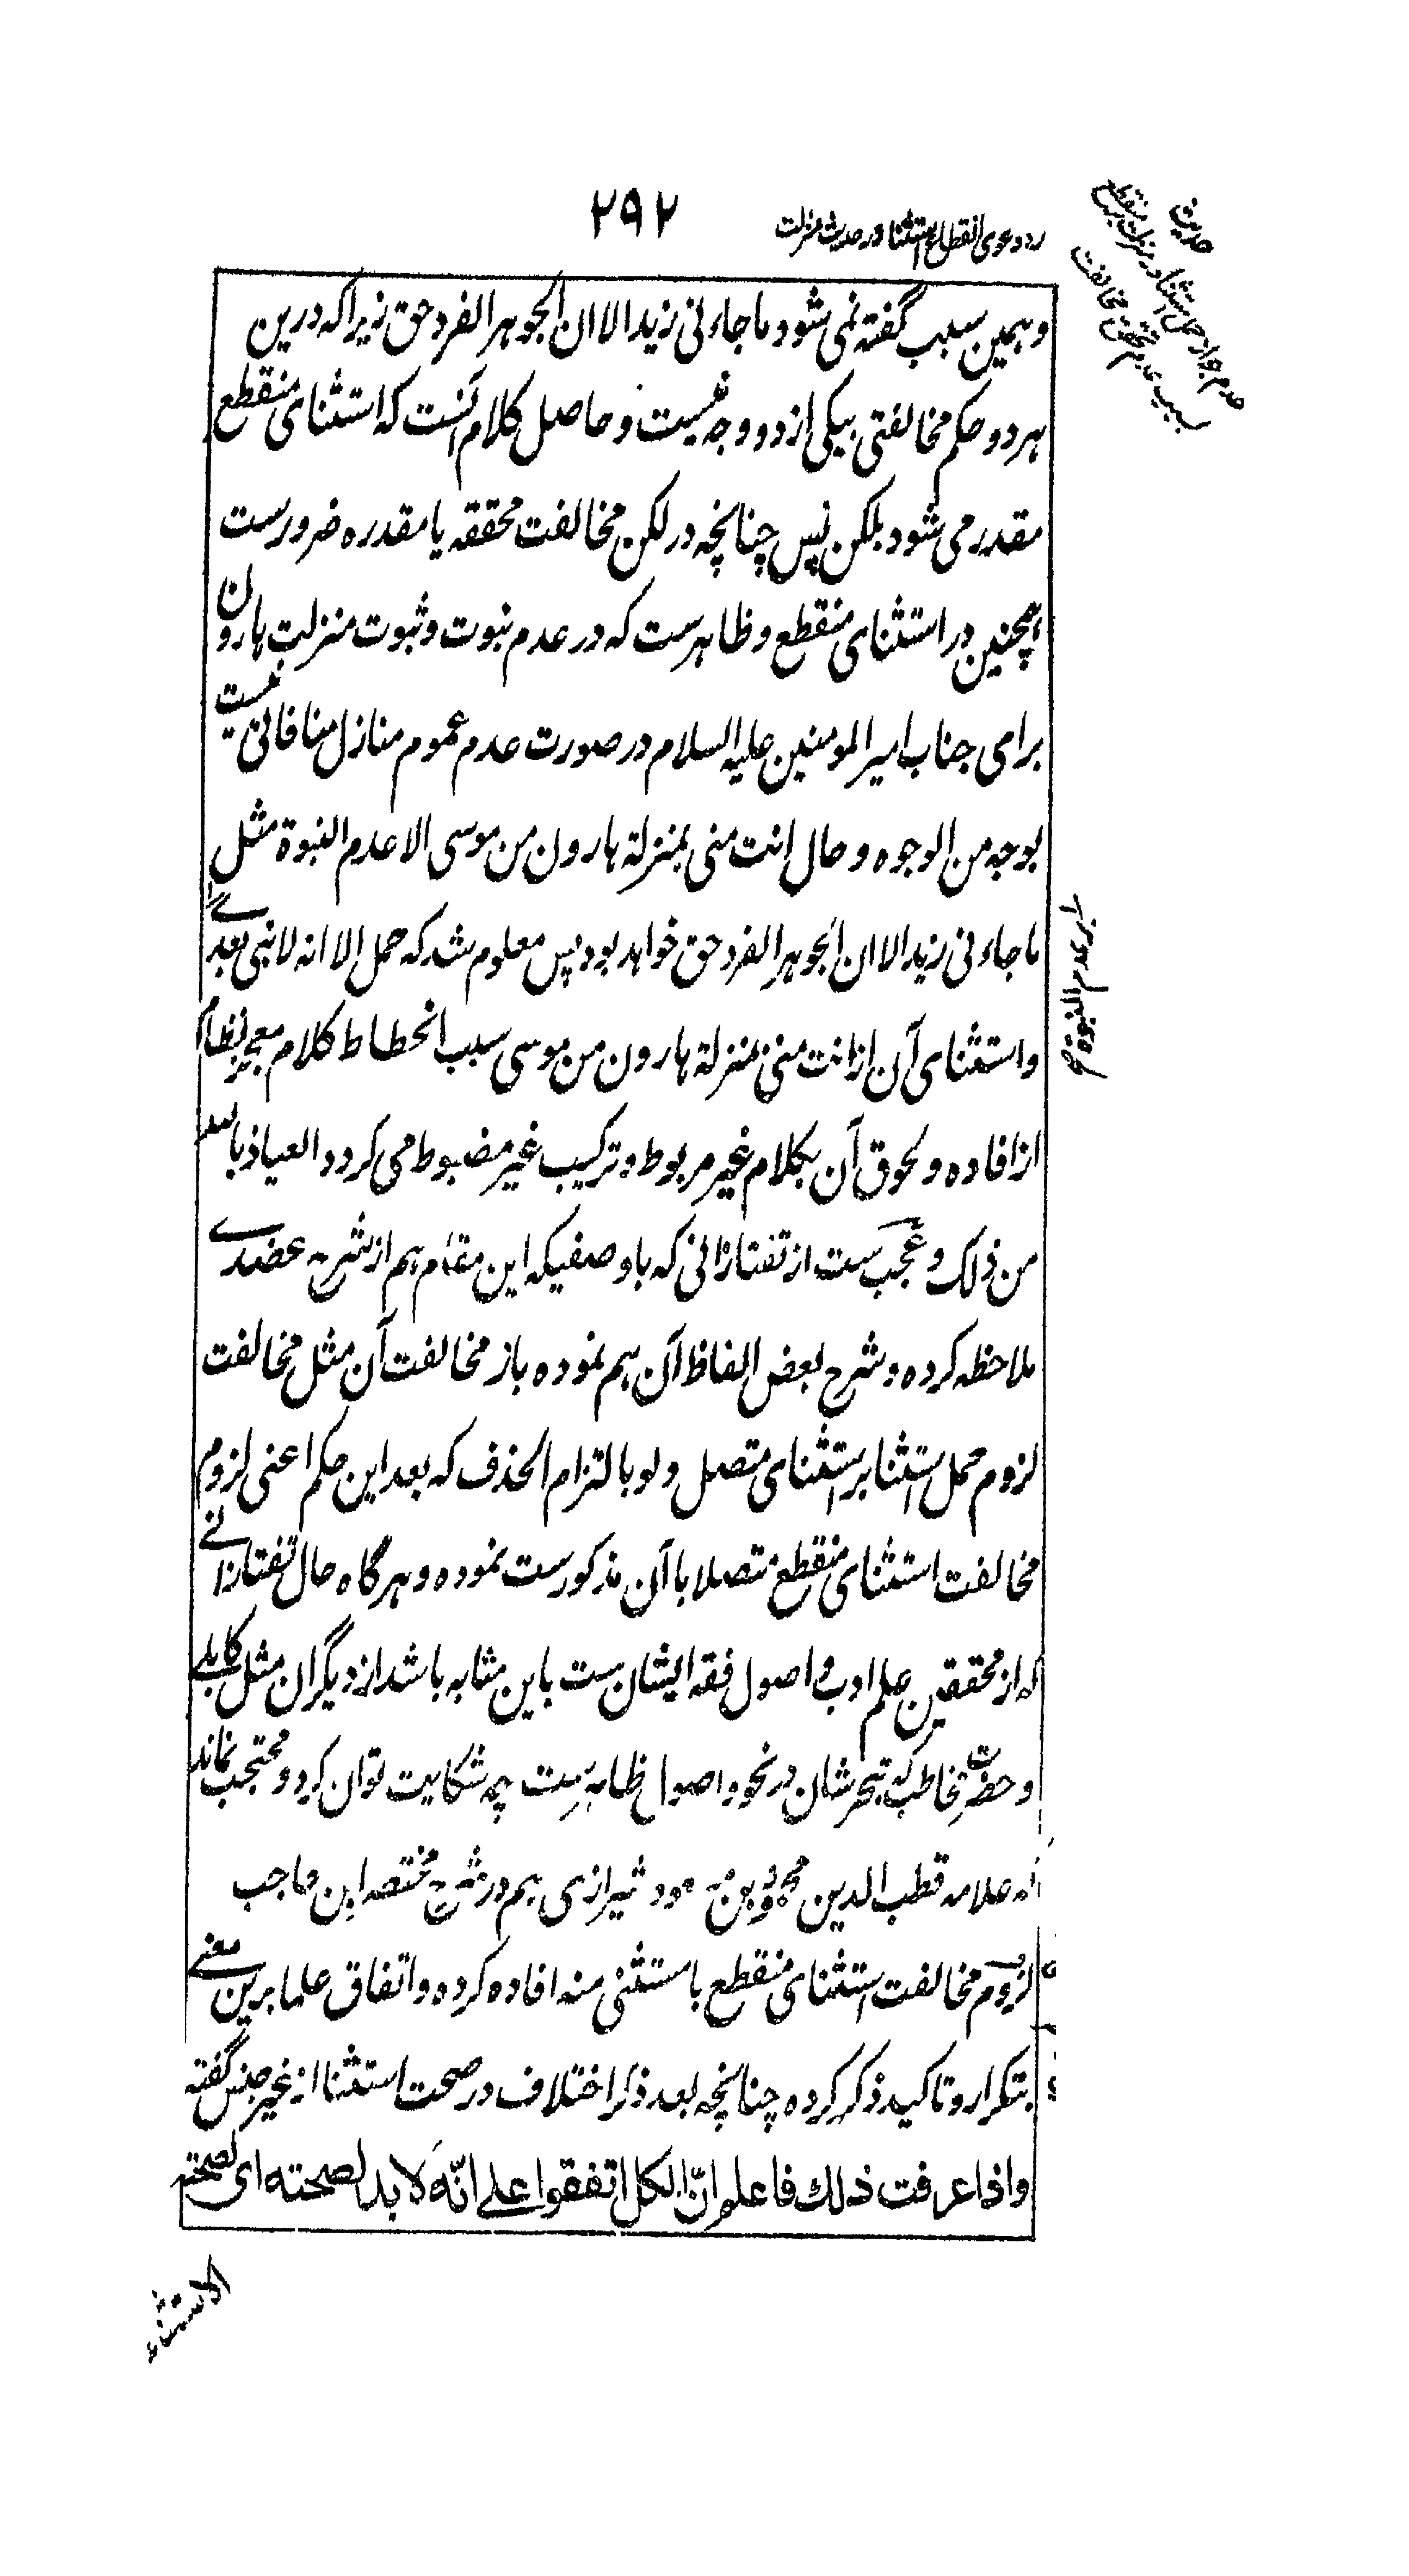 ۲۹۲
رد دعوی انقطاع استثنا در حدیث منزلت
حدیث
عدم جواز حمل استثنا در منزلت بر منقطع
بسبب عدم تحقق مخالفت
و بهمین سبب گفته نمی شود ما جاءنی زید الا ان الجوهر الفرد حق زیرا که درین
هر دو حکم مخالفتی بیکی از دو وجه نیست و حاصل کلام آنست که استثنای منقطع
مقدر می شود بلکن پس چنانچه در لکن مخالفت محققه یا مقدره ضرورست
همچنین در استثنای منقطع و ظاهرست که در عدم نبوت و ثبوت منزلت هارون
برای جناب امیر المومنین علیه السلام در صورت عدم عموم منازل منافاتی نیست
بوجه من الوجوه و حال انت منی بمنزلة هارون من موسی الا عدم النبوة مثل
ما جاءنی زید الا ان الجوهر الفرد حق خواهد بود پس معلوم شد که حمل الا انه لا نبی بعدی
و استثنای آن از انت منی بمنزلة هارون من موسی سبب انحطاط کلام معجز نظام
از افاده و لحوق آن بکلام غیر مربوط و ترکیب غیر مضبوط می گردد العیاذ بالله
من ذلک و عجب ست از تفتازانی که با وصفیکه این مقام هم از شرح عضدی
ملاحظه کرده و شرح بعض الفاظ آن هم نموده باز مخالفت آن مثل مخالفت
لزوم حمل استثنا بر استثنای متصل و لو بالتزام الحذف که بعد این حکم اعنی لزوم
مخالفت استثنای منقطع متصلا با آن مذکورست نموده و هرگاه حال تفتازانی
که از محققین علم ادب و اصول فقه ایشان ست باین مثابه باشد از دیگران مثل کابلی
و حضرت مخاطب که تبحرشان در نحو و اصول ظاهرست چه شکایت توان کرد و محتجب نماند
که علامه قطب الدین محمود بن مسعود شیرازی هم در شرح مختصر ابن حاجب
لزوم مخالفت استثنای منقطع با مستثنی منه افاده کرده و اتفاق علما برین معنی
بتکرار و تاکید ذکر کرده چنانچه بعد ذکر اختلاف در صحت استثنا از غیر جنس گفته
و اذا عرفت ذلك فاعلم انّ الكل اتفقوا على انّه لا بد لصحته ای لصحة
الاستثناء